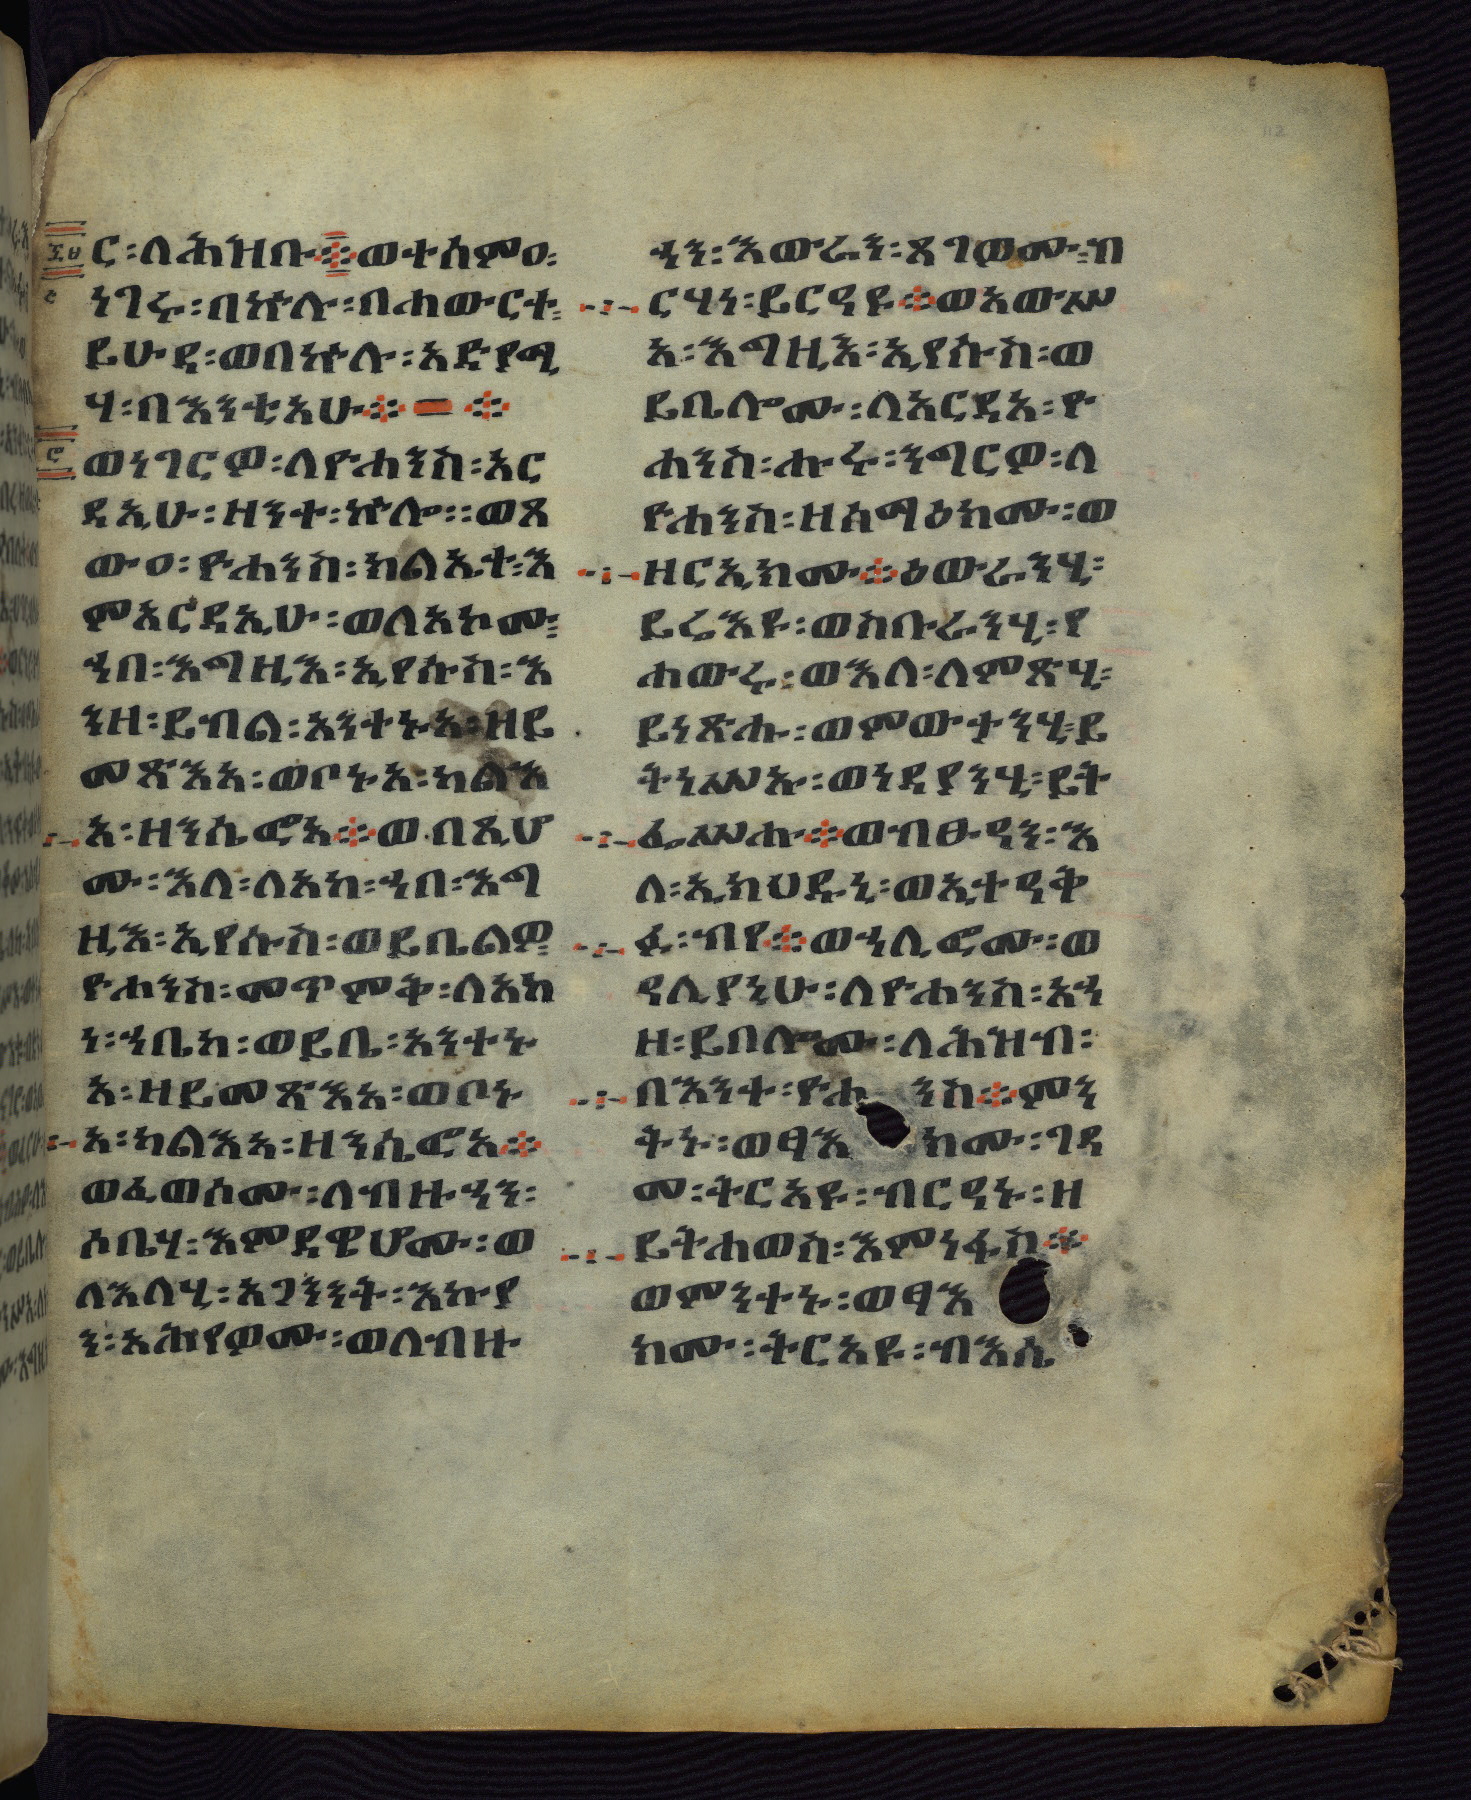 ር፡ለሕዝቡ፨ወተሰምዐ፡
ነገሩ፡በኵሉ፡በሐውርተ፡
ይሁዳ፡ወበኵሉ፡አድያሚ
ሃ፡በእንቲአሁ፨ ፨
ወነገርዎ፡ለዮሐንስ፡አር
ዳኢሁ፡ዘንተ፡ኵሎ፡፡ወጸ
ውዐ፡ዮሐንስ፡ክልኤተ፡እ
ምአርዳኢሁ፡ወለአኮሙ፡
ኀበ፡እግዚእ፡ኢየሱስ፡እ
ንዘ፡ይብል፡አንተኑአ፡ዘይ
መጽእአ፡ወቦኑአ፡ካልእ
አ፡ዘንሴፎአ፨ወበጺሖ
ሙ፡እለ፡ለአከ፡ኀበ፡እግ
ዚእ፡ኢየሱስ፡ወይቤልዎ፡
ዮሐንስ፡መጥምቅ፡ለአከ
ነ፡ኀቤከ፡ወይቤ፡አንተኑ
አ፡ዘይመጽእአ፡ወቦኑ
አ፡ካልእአ፡ዘንሴፎአ፨
ወፈወሰሙ፡ለብዙኃን፡
ሶቤሃ፡እምደዌሆሙ፡ወ
ለእለሂ፡አጋንንት፡እኩያ
ን፡አሕየዎሙ፡ወለብዙ
ኃን፡እውራን፡ጸገወሙ፡ብ
ርሃነ፡ይርዳዩ፨ወአውሥ
አ፡እግዚእ፡ኢየሱስ፡ወ
ይቤሎሙ፡ለአርዳእ፡ዮ
ሐንስ፡ሑሩ፡ንግርዎ፡ለ
ዮሐንስ፡ዘሰማዕክሙ፡ወ
ዘርኢክሙ፨ዕውራንሂ፡
ይሬእዩ፡ወስቡራንሂ፡የ
ሐውሩ፡ወእለ፡ለምጽሂ፡
ይነጽሑ፡ወምውታንሂ፡ይ
ትነሥኡ፡ወነዳያንሂ፡ይት
ፌሥሑ፨ወብፁዓን፡እ
ለ፡ኢክህዱኒ፡ወኢተዓቅ
ፉ፡ብየ፨ወኀሊፎሙ፡ወ
ዓልያኒሁ፡ለዮሐንስ፡አኀ
ዘ፡ይበሎሙ፡ለሕዝብ፡
በእንተ፡ዮሐ ንስ፨ምን
ትኑ፡ወፃእ ክሙ፡ገዳ
መ፡ትርአዩ፡ብርዓኑ፡ዘ
ይትሐወስ፡እምነፋስ፨
ወምንተኑ፡ወፃእ
ክሙ፡ትርአዩ፡ብእሴ